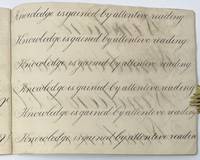 Knowledge is gained by attentive reading
Knowledge is gained by attentive reading
Knowledge is gained by attentive reading
Knowledge is gained by attentive reading
Knowledge is gained by attentive reading
Knowledge, is gained by attentive readin